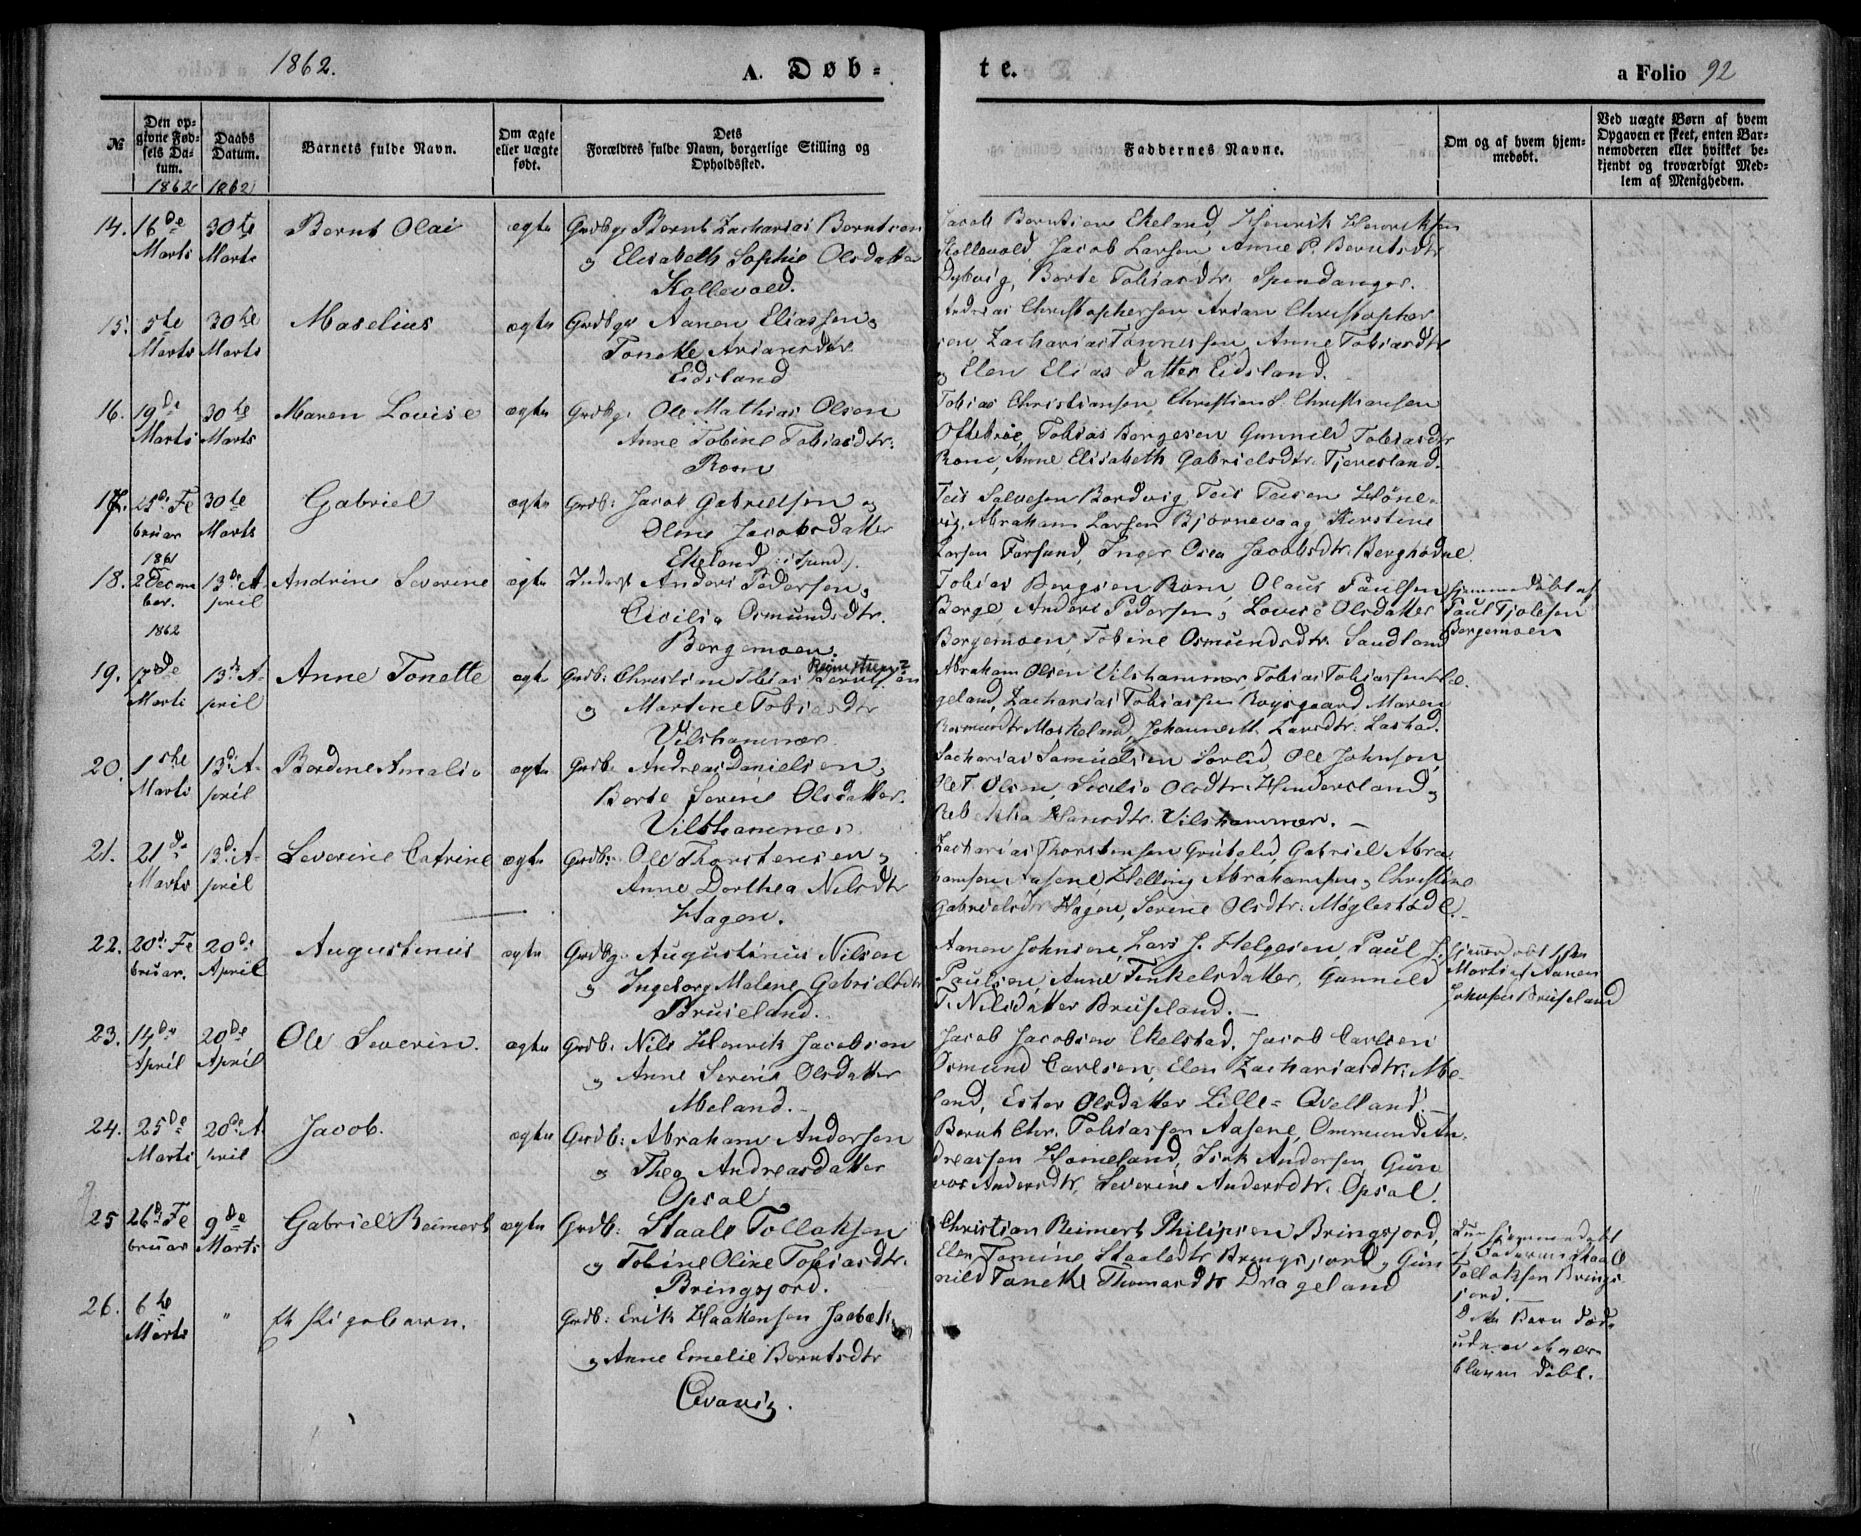 1862.
A. Døb-
te.
a Folio 92
№
Den op-
givne Fød-
sels Da-
tum.
1862
Daabs
Datum.
1862
Barnets fulde Navn.
Om ægte
eller uægte
født.
Dets
Forældres fulde Navn, borgerlige Stilling og
Opholdssted.
Faddernes Navne.
Om og af hvem hjem-
medøbt.
Ved uægte Børn af hvem
Opgaven er skeet, enten Bar-
nemoderen eller hvilket be-
kjendt og troværdigt Med-
lem af Menigheden.
14.
16de
Marts
30te
Marts
Bernt Olai
ægte
Grdbgr Bernt Zacharias Berntsen
og Elisabeth Sophie Olsdatter
Kollevold.
Jacob Berntsen Ekeland, Henrik Henriksen
Kollevold, Jacob Larsen Anne P. Berntsdtr
Dybvig, Berte Tobiasdtr. Spindanger.
15.
5te
Marts
30te
Marts
Maselius
ægte
Grdbgr Aanen Eliassen og
Tonette Ariansdtr
Eidsland
Andreas Christophersen Arian Christopher
sen, Zacharias Tønnessen, Anne Tobiasdtr
og Elen Elias datter Eidsland.
16.
19de
Marts
30te
Marts
Maren Lovise
ægte
Grdbgr Ole Mathias Olsen
Anne Tobine Tobiasdtr.
Rom
Tobias Christiansen, Christian S Christiansen
Oftebroe, Tobias Børgesen Gunnild Tobiasdtr
Rom, Anne Elisabeth Gabrielsdtr. Tjersland.
17.
25de Fe
bruar
30te
Marts
Gabriel
ægte
Grdb: Jacob Gabrielsen og
Oline Jacobsdatter
Ekeland i Sund
Teis Salvesen Bordvig, Teis Teisen Høne-
vig, Abraham Larsen Bjørnevaag Kirstine
Larsen Farsund, Inger Osea Jacobsdtr. Berghodne
18.
1861
2 Decem
ber.
13de A
pril
Andrine Severine
ægte
Inderst Anders Pedersen og
Cecilia Osmundsdtr.
Bergemoen.
Tobias Bergsen Rom, Olaus Paulsen
Berge, Anders Pedersen, Lovise Olsdatter
Bergemoen, Tobine Osmundsdtr. Sandland
hjemmedøbt af
Paul Tjølsen
Bergemoen
19.
1862
Marts
13de A-
pril
Anne Tonette
ægte
Grdb: Christian Tobias Berntsen
og Martine Tobiasdtr
Vilshammer.
Abraham Olsen Vilshammer, Tobias Tobiassen Hæ-
geland, Zacharias Tobiassen Røysgaard Maren
Rasmusdtr Moskeland, Johanne M. Larsdtr. Lastad.
20.
1ste
Marts
13de A-
pril
Bordine Amalia
ægte
Grdb. Andreas Danielsen og
Berte Serine Olsdatter.
Vilshammer
Zacharias Samuelsen Sørlid, Ole Johnsen,
Ole T. Olsen, Secilia Olsdtr. Hindersland og
Rebekka Hansdtr. Vilshammer. –
21.
21de
Marts
13de A-
pril
Severine Catrine
ægte
Grdb: Ole Thorstensen og
Anne Dorthea Nilsdtr
Hagen.
Zacharias Thorstensen Grubelid, Gabriel Abra
hamsen Aasene, Helling Abrahamsen og Christine
Gabrielsdtr Hagen, Serine Olsdtr. Møglestødl.
22.
20de Fe
bruar.
20de
April
Augustinus
ægte
Grdbgr. Augustinus Nilsen
og Ingeborg Malene Gabrielsdtr
Bruseland.
Aanen Johnsen, Lars J. Helgesen, Paul J.
Paulsen, Anne Tinkelsdatter, Gunnild
T. Nilsdatter Bruseland. –
Marts af Aanen
Johnsen Bruseland
23.
14de
April
20de
April
Ole Severin.
ægte
Grdb: Nils Henrik Jacobsen
og Anne Serine Olsdatter
Meland. –
Jacob Jacobsen Ekelstad, Jacob Carlsen
Osmund Carlsen, Elen Zachariasdtr. Me-
land, Ester Olsdatter Lille-Qvelland. –
24.
25de
Marts
20de A
pril
Jacob.
ægte
Grdb: Abraham Andersen
og Thea Andreasdatter
Opsal
Bernt Chr. Tobiassen Aasene, Ommund An-
dreassen Homeland, Isak Andersen, Gun
vor Andersdtr, Severine Andersdtr. Opsal.
25
26de Fe
bruar
9de
Marts
Gabriel Reimert
ægte
Grdb: Staale Tollaksen
og Tobine Oline Tobiasdtr.
Bringsjord.
Christian Reimert Philipsen Bringsjord,
Elen Tomine Staalesdtr Bringsjord, Gun
nild Tonette Thomasdtr Drageland
hjemmedøbt
af Faderen Staale
Tollaksen Brings-
jord. –
26.
6te
Marts
"
Et Pigebarn.
Grdb: Erik Haakensen Jaabæk
og Anne Emelie Berntsdtr
Qvavig.
Dette Barn døde
uden at være
bleven døbt. –